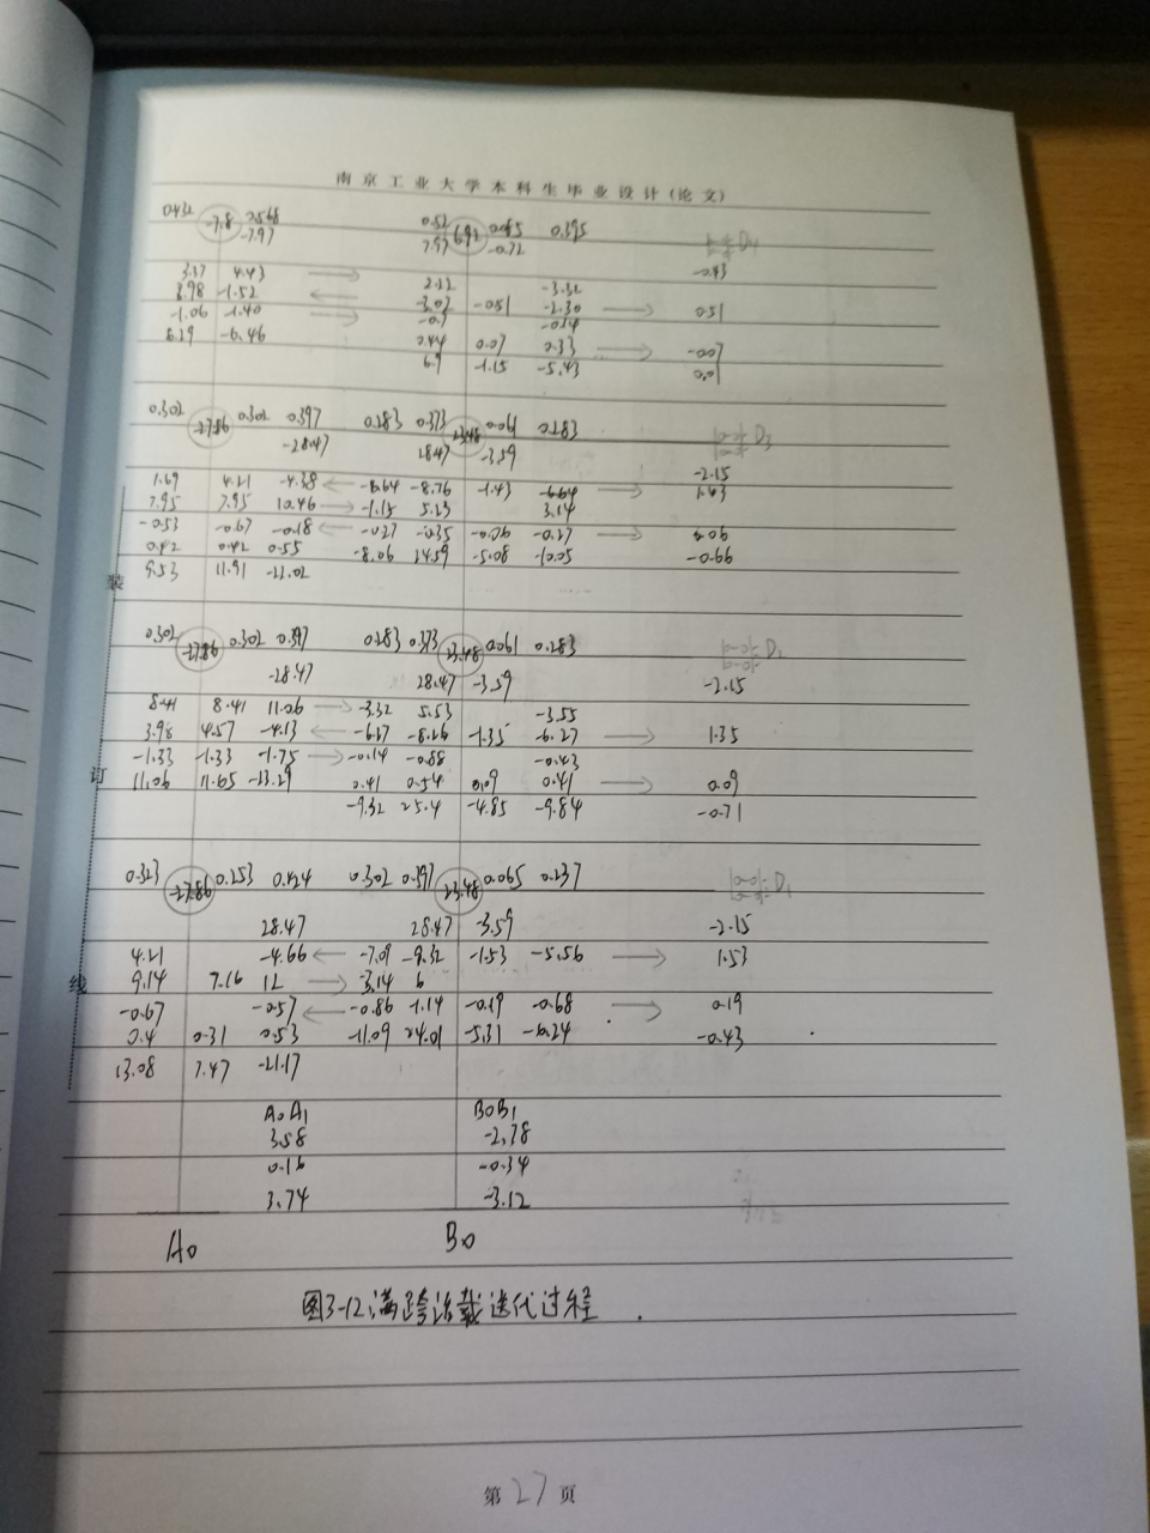 南京工业大学本科生毕业设计(论文)
0.432 -7.8 0.568 0.52 6.92 0.085 0.395
-7.97 7.97 -0.72
-0.43
3.37 4.43 2.22 -3.32
3.98 -1.52 -3.03 -0.51 -2.30 0.51
-1.06 -1.40 -0.7 -0.14
6.29 -6.46 0.44 0.07 0.33 -0.07
6.9 -1.15 -5.43 0.01
0.302 -27.86 0.302 0.397 0.283 0.373 23.48 0.061 0.283
D3
-28.47 28.47 -3.59
-2.15
1.69 4.21 -4.38 -6.64 -8.76 -1.43 -6.64 1.43
7.95 7.95 10.46 -1.15 5.23 3.14
-0.53 -0.67 -0.18 -0.27 -0.35 -0.06 -0.27 0.06
0.42 0.42 0.55 -8.06 24.59 -5.08 -10.05 -0.66
9.53 11.91 -22.02
装
0.302 -27.86 0.302 0.397 0.283 0.373 23.48 0.061 0.283
-28.47 28.47 -3.59 -2.15
8.41 8.41 11.06 -3.32 5.53 -3.55
3.98 4.57 -4.13 -6.27 -8.26 -1.35 -6.27 1.35
-1.33 -1.33 -1.75 -0.14 -0.88 -0.43
订
11.06 11.65 -23.29 0.41 0.54 0.09 0.41 0.09
-9.32 25.4 -4.85 -9.84 -0.71
0.323 -27.86 0.253 0.424 0.302 0.397 23.48 0.065 0.237
D1
28.47 28.47 -3.59 -2.15
4.21 -4.66 ← -7.09 -9.32 -1.53 -5.56 → 1.53
9.14 7.16 12 → -3.14 6
线
-0.67 -0.57 ← -0.86 1.14 -0.19 -0.68 → 0.19
0.4 0.31 0.53 -11.09 24.01 -5.31 -6.24 -0.43
13.08 7.47 -21.17
A0A1 B0B1
3.58 -2.78
0.16 -0.34
3.74 -3.12
A0 B0
图3-12满跨活载迭代过程.
第27页